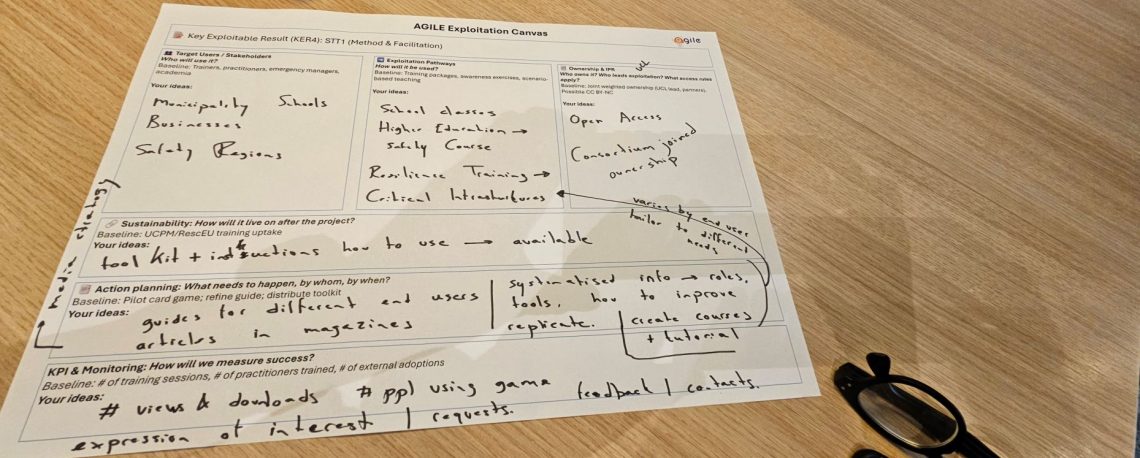 AGILE Exploitation Canvas
agile
Key Exploitable Result (KER4): STT1 (Method & Facilitation)
Target Users / Stakeholders
Who will use it?
Baseline: Trainers, practitioners, emergency managers,
academia
Your ideas:
Municipality Schools
Businesses
Safety Regions
Exploitation Pathways
How will it be used?
Baseline: Training packages, awareness exercises, scenario-
based teaching
Your ideas:
School classes
Higher Education →
Safety Course
Resilience Training →
Critical Infrastructures
Ownership & IPR
Who owns it? Who leads exploitation? What access rules
apply?
Baseline: Joint weighted ownership (UCL lead, partners).
Possible CC BY-NC
Your ideas:
Open Access
Consortium joined
ownership
varies by end user
tailor to different
needs
Sustainability: How will it live on after the project?
Baseline: UCPM/RescEU training uptake
Your ideas:
tool kit + instructions how to use → available
media strategy
Action planning: What needs to happen, by whom, by when?
Baseline: Pilot card game; refine guide; distribute toolkit
Your ideas:
guides for different end users
articles in magazines
systematised info → roles,
tools, how to improve
replicate.
create courses
+ tutorial
KPI & Monitoring: How will we measure success?
Baseline: # of training sessions, # of practitioners trained, # of external adoptions
Your ideas:
# views & dowloads # ppl using game feedback | contacts.
expression of interest | requests.